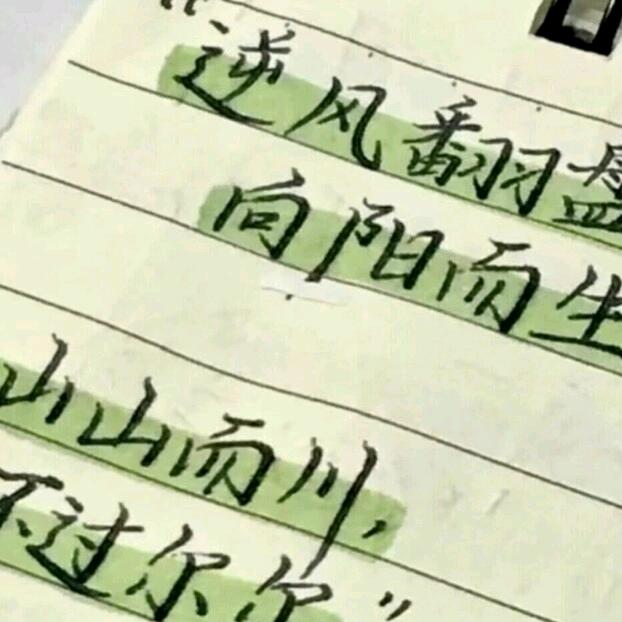 “逆风翻盘
向阳而生
山山而川,
不过尔尔”